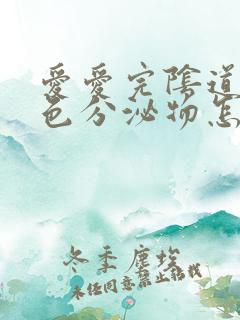 愛愛完陰道
色分泌物怎
冬季塵埃
未經同意禁止轉載